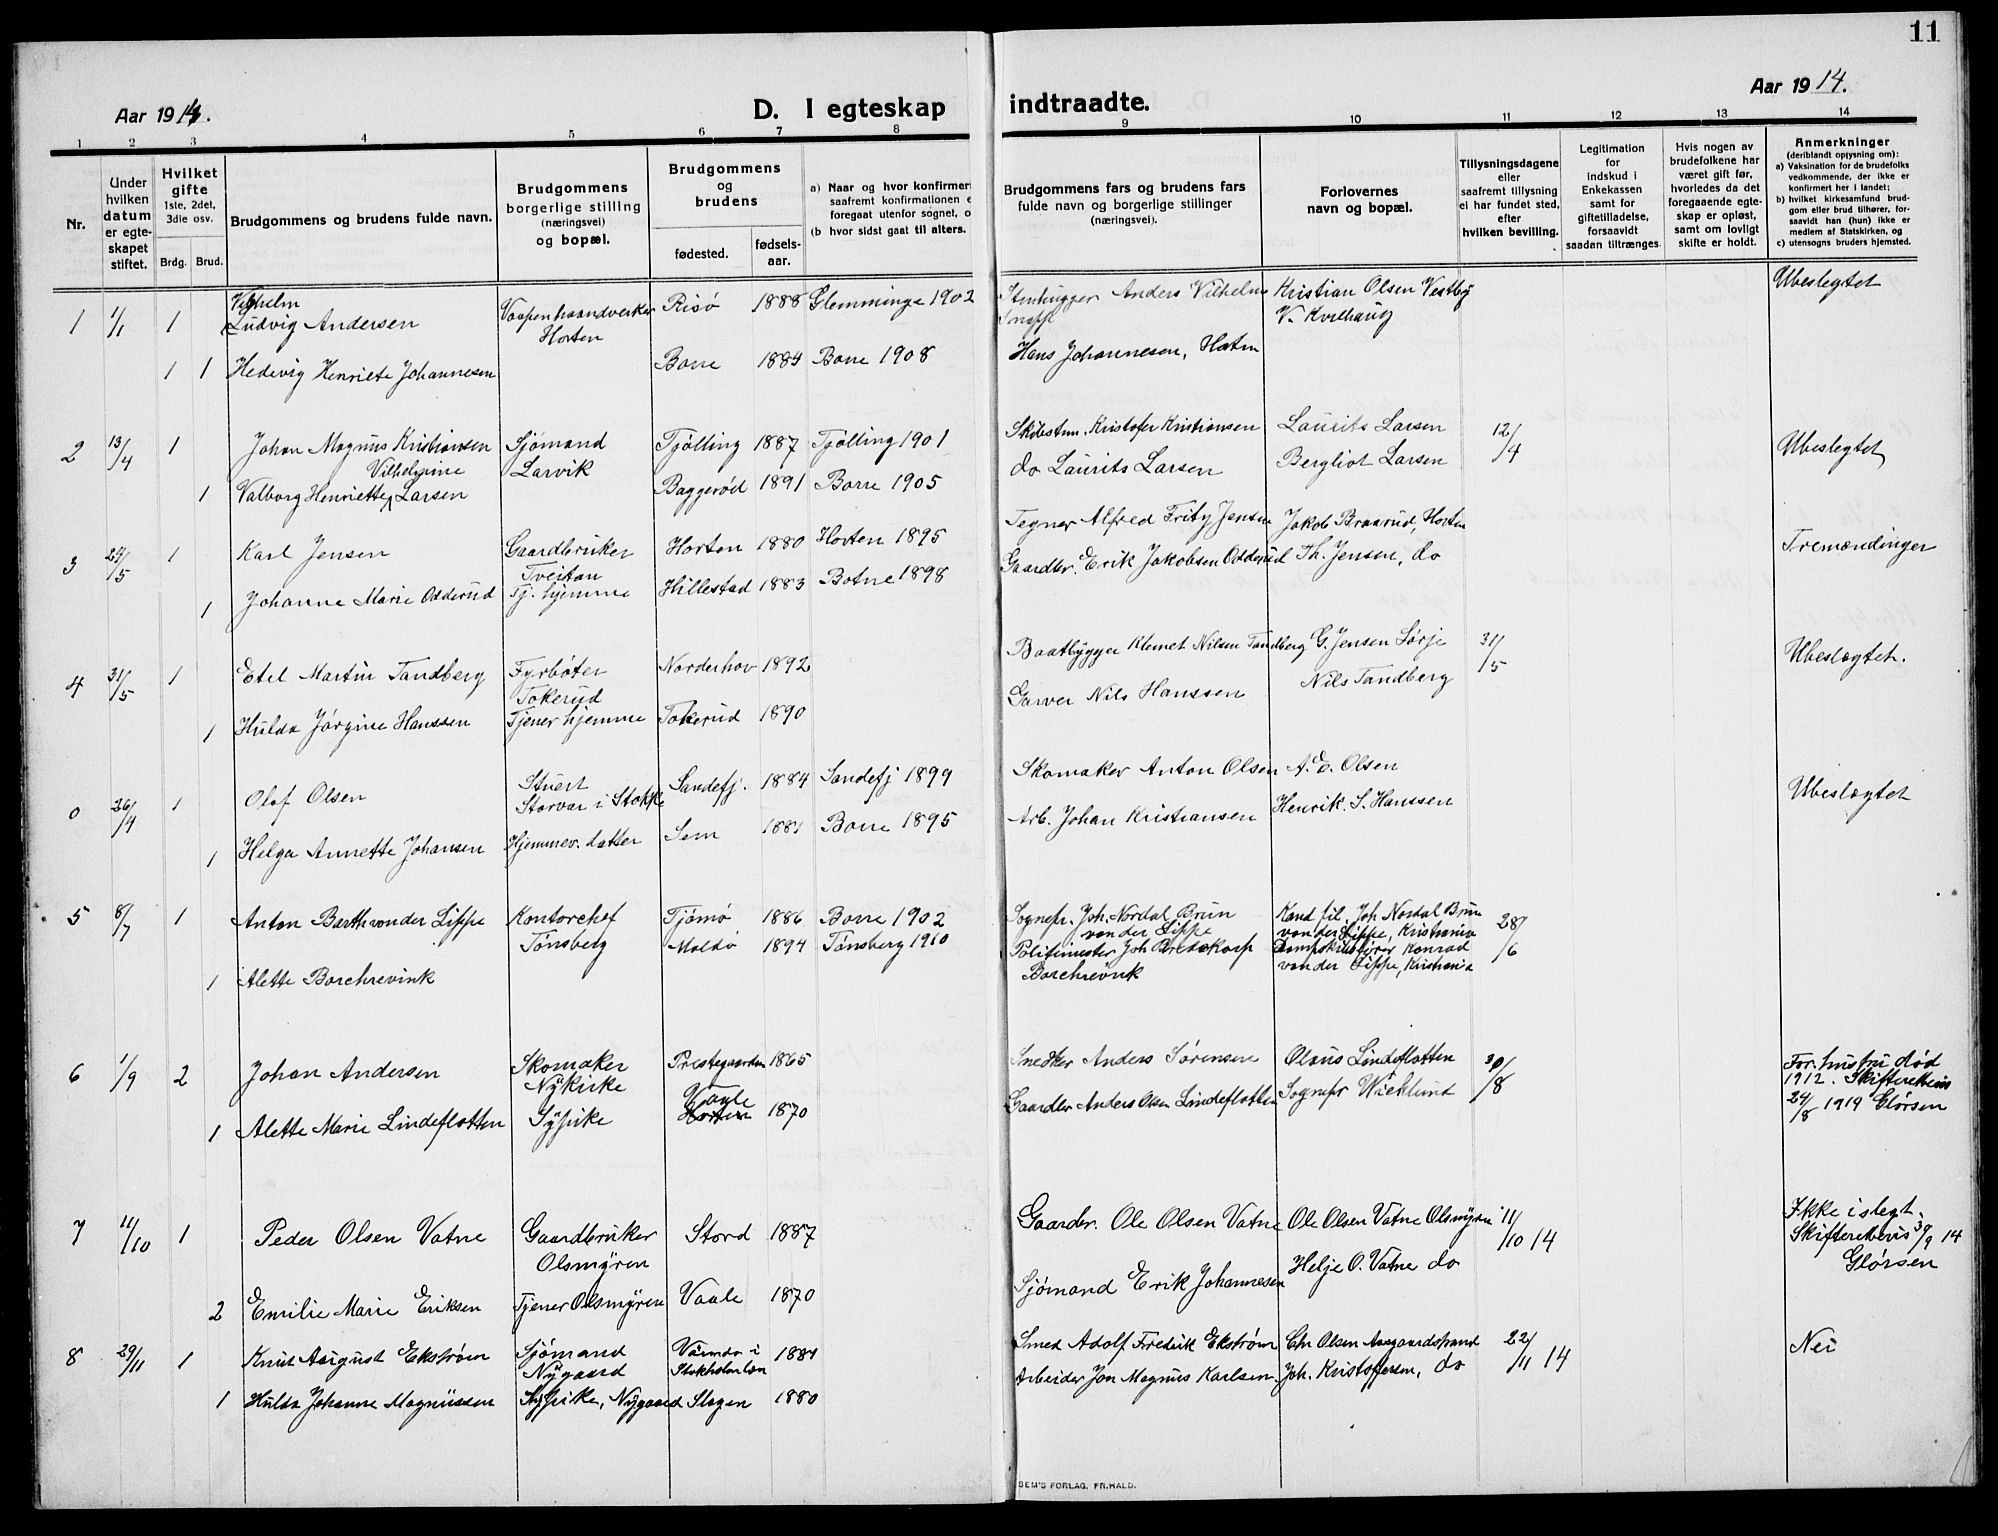 11
Aar 1914.
D. I egteskap indtraadte.
Aar 1914.
1 2 3 4 5 6 7 8 9 10 11 12 13 14
Nr.
Under hvilken datum er egte-skapet stiftet.
Hvilket gifte 1ste, 2det, 3die osv.
Brdg. Brud.
Brudgommens og brudens fulde navn.
Brudgommens borgerlige stilling (næringsvei) og bopæl.
Brudgommens og brudens
fødested. fødsels-aar.
a) Naar og hvor konfirmer
saafremt konfirmationen e
foregaat utenfor sognet, o
(b hvor sidst gaat til alters.
Brudgommens fars og brudens fars
fulde navn og borgerlige stillinger
(næringsvei).
Forlovernes
navn og bopæl.
Tillysningsdagene
eller
saafremt tillysning
ei har fundet sted,
efter
hvilken bevilling.
Legitimation
for
indskud i
Enkekassen
samt for
giftetilladelse,
forsaavidt
saadan tiltrænges.
Hvis nogen av
brudefolkene har
været gift før,
hvorledes da det
foregaaende egte-
skap er opløst,
samt om lovligt
skifte er holdt.
Anmerkninger
(deriblandt opysning om):
a) Vaksination for de brudefolks
vedkommende, der ikke er
konfirmert her i landet;
b) hvilket kirkesamfund brud-
gom eller brud tilhører, for-
saavidt han (hun) ikke er
medlem af Statskirken, og
c) utensogns bruders hjemsted.
1 1/1 1 Vilhelm Ludvig Andersen Vaapenhaandverker Horten Risø 1888 Glemminge 1902 Stenhugger Anders Vilhelm Kristian Olsen Vestby Ubeslegtet
V. Kvilhaug
1 1 Hedevig Henriete Johannesen Borre 1884 Borre 1908 Hans Johannesen, Horten
2 13/4 1 Johan Magnus Kristiansen Sjømand Larvik Tjølling 1887 Tjølling 1901 Skibstm. Kristofer Kristiansen Laurits Larsen 12/4 Ubeslegtet
1 Valborg Henriette Vilhelmine Larsen Baggerød 1891 Borre 1905 do Laurits Larsen Bergliot Larsen
3 24/5 1 Karl Jensen Gaardbruker Tveitan Horten 1880 Horten 1895 Tegner Alfred Fritz Jensen Jakob Braarud, Horten Tremændinger
1 Johanne Marie Odderud Tj. hjemme Hillestad 1883 Botne 1898 Gaardbr. Erik Jakobsen Odderud Th. Jensen, do
4 31/5 1 Etel Martin Tandberg Fyrbøter Tokerud Norderhov 1892 Baatbygger Klemet Nilsen Tandberg G. Jensen Lørje 31/5 Ubeslegtet.
1 Hulda Jørgine Hanssen Tjener hjemme Tokerud 1890 Garver Nils Hanssen Nils Tandberg
0 26/4 1 Olaf Olsen Stuert Storvar i Stokke Sandefj. 1884 Sandefj 1899 Skomaker Anton Olsen A. E. Olsen Ubeslegtet
1 Helga Annette Johansen Hjemmev. datter Sem 1881 Borre 1895 Arb. Johan Kristiansen Henrik. S. Hanssen
5 8/7 1 Anton Barth von der Lippe Kontorchef Tønsberg Tjømø 1886 Borre 1902 Sognepr. Joh. Nordal Brun von der Lippe Kand fil. Joh. Nordal Brun von der Lippe, Kristiania 28/6
1 Alette Borchrevink Moldø 1894 Tønsberg 1910 Politimester Joh Borchrevink Konrad von der Lippe, Kristiania
6 1/9 2 Johan Andersen Skomaker Nykirke Prestegaarden 1865 Snedker Anders Sørensen Olaus Lindeflatten 30/8 For. hustru død 1912. Skifterettens 24/8 1914 Glørsen
1 Alette Marie Lindeflatten Sypike Vaale Horten 1870 Gaardbr Anders Olsen Lindeflatten Sognepr Wicklund
7 11/10 1 Peder Olsen Vatne Gaardbruker Olsmyren Stord 1887 Gaardbr. Ole Olsen Vatne Ole Olsen Vatne Olsmyren 11/10 14 Ikke i slegt. Skifterebevis 3/9 14 Glørsen
2 Emilie Marie Eriksen Tjener Olsmyren Vaale 1870 Sjømand Erik Johannesen Helje O. Vatne do
8 29/11 1 Knut August Ekstrøm Sjømand Nygaard Värmdø i Stokholmlän 1884 Smed Adolf Fredrik Ekstrøm Chr Olsen Aasgaardstrand 22/11 14 Nei
1 Hulda Johanne Magnussen Sypike, Nygaard Slagen 1880 Arbeider Jon Magnus Karlsen Joh. Kristoffersen, do
SEM'S FORLAG, FR.HALD.